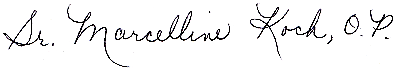 Sr. Marcelline Koch, O.P.